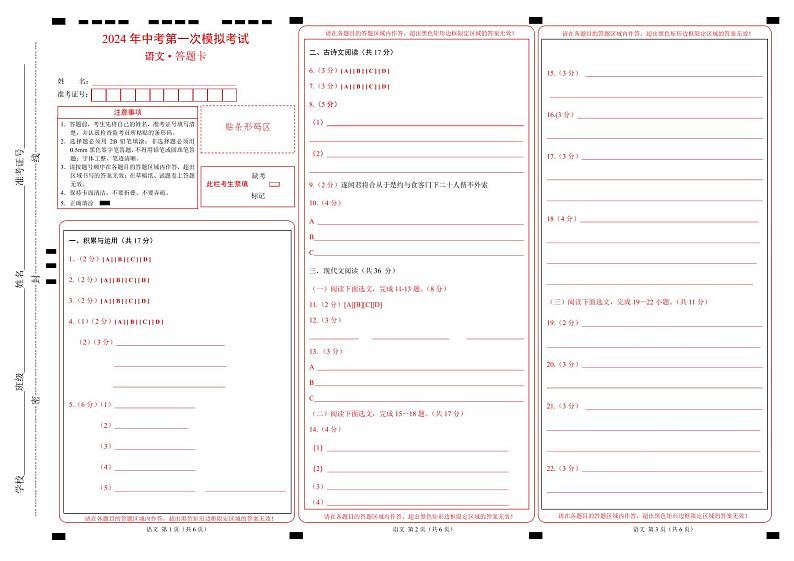 2024 年中考第一次模拟考试
语文·答题卡
姓 名:
准考证号:
注意事项
1. 答题前,考生先将自己的姓名,准考证号填写清
楚,并认真检查监考员所粘贴的条形码。
2. 选择题必须用 2B 铅笔填涂;非选择题必须用
0.5mm 黑色签字笔答题,不得用铅笔或圆珠笔答
题;字体工整、笔迹清晰。
3. 请按题号顺序在各题目的答题区域内作答,超出
区域书写的答案无效;在草稿纸、试题卷上答题
无效。
4. 保持卡面清洁,不要折叠、不要弄破。
5. 正确填涂
贴条形码区
此栏考生禁填
缺考
标记
学校
班级
姓名
准考证号
密
封
线
一、积累与运用(共 17 分)
1.(2 分)[A] [B] [C] [D]
2.(2 分)[A] [B] [C] [D]
3.(2 分)[A] [B] [C] [D]
4.(1)(2 分)[A] [B] [C] [D]
(2)(3 分)
5.(6 分)(1)
(2)
(3)
(4)
(5)
请在各题目的答题区域内作答,超出黑色矩形边框限定区域的答案无效!
语文 第 1 页(共 6 页)
请在各题目的答题区域内作答,超出黑色矩形边框限定区域的答案无效!
二、古诗文阅读(共 17 分)
6.(3 分)[A] [B] [C] [D]
7.(3 分)[A] [B] [C] [D]
8.(5 分)
(1)
(2)
9.(2 分)遂闻君将合从于楚约与食客门下二十人偕不外索
10.(4 分)
A
B
C
三、现代文阅读(共 36 分)
(一)阅读下面选文,完成 11-13 题。(8 分)
11.(2 分)[A][B][C][D]
12.(3 分)
13.(3 分)
A
B
C
(二)阅读下面选文,完成 15—18 题。(共 17 分)
14.(4 分)
(1)
(2)
(3)
(4)
请在各题目的答题区域内作答,超出黑色矩形边框限定区域的答案无效!
语文 第 2 页(共 6 页)
请在各题目的答题区域内作答,超出黑色矩形边框限定区域的答案无效!
15.(3 分)
16.(3 分)
17.(3 分)
18(4 分)
(三)阅读下面选文,完成 19—22 小题。(共 11 分)
19.(2 分)
20.(3 分)
21.(3 分)
22.(3 分)
请在各题目的答题区域内作答,超出黑色矩形边框限定区域的答案无效!
语文 第 3 页(共 6 页)